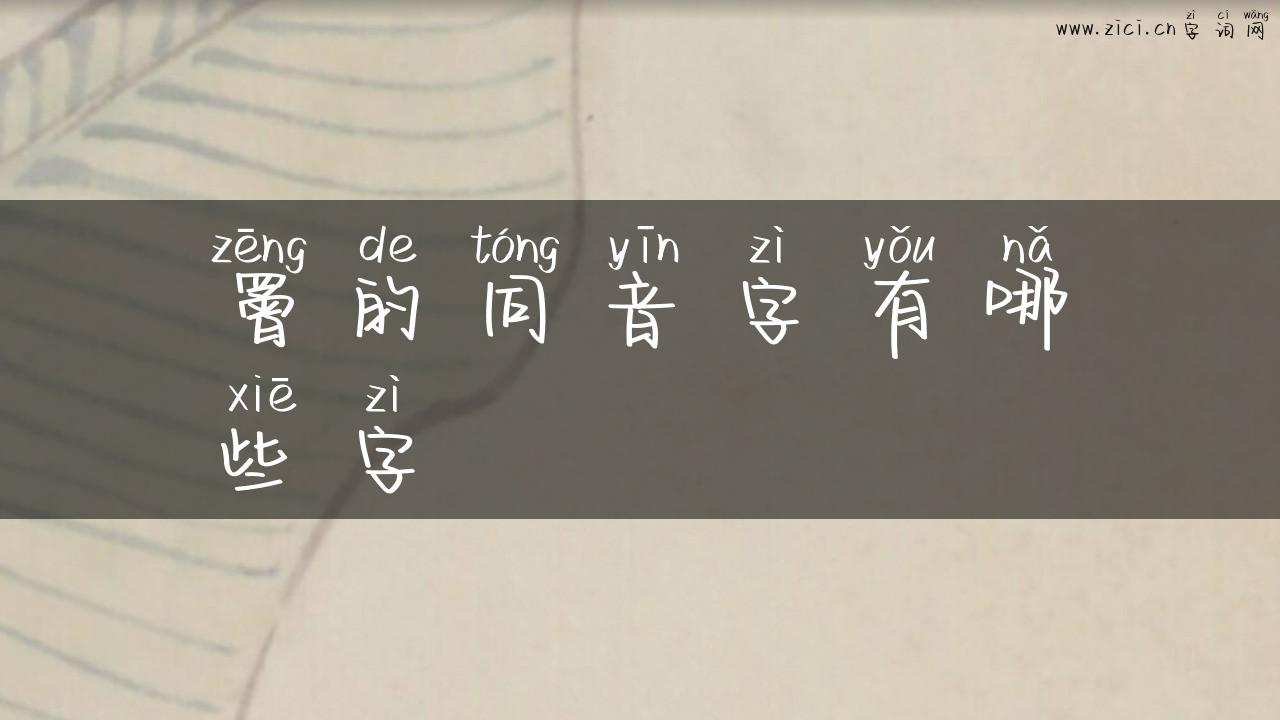 www.zici.cn zì cí wǎng
字词网
zēng de tóng yīn zì yǒu nǎ
罾的同音字有哪
xiē zì
些字